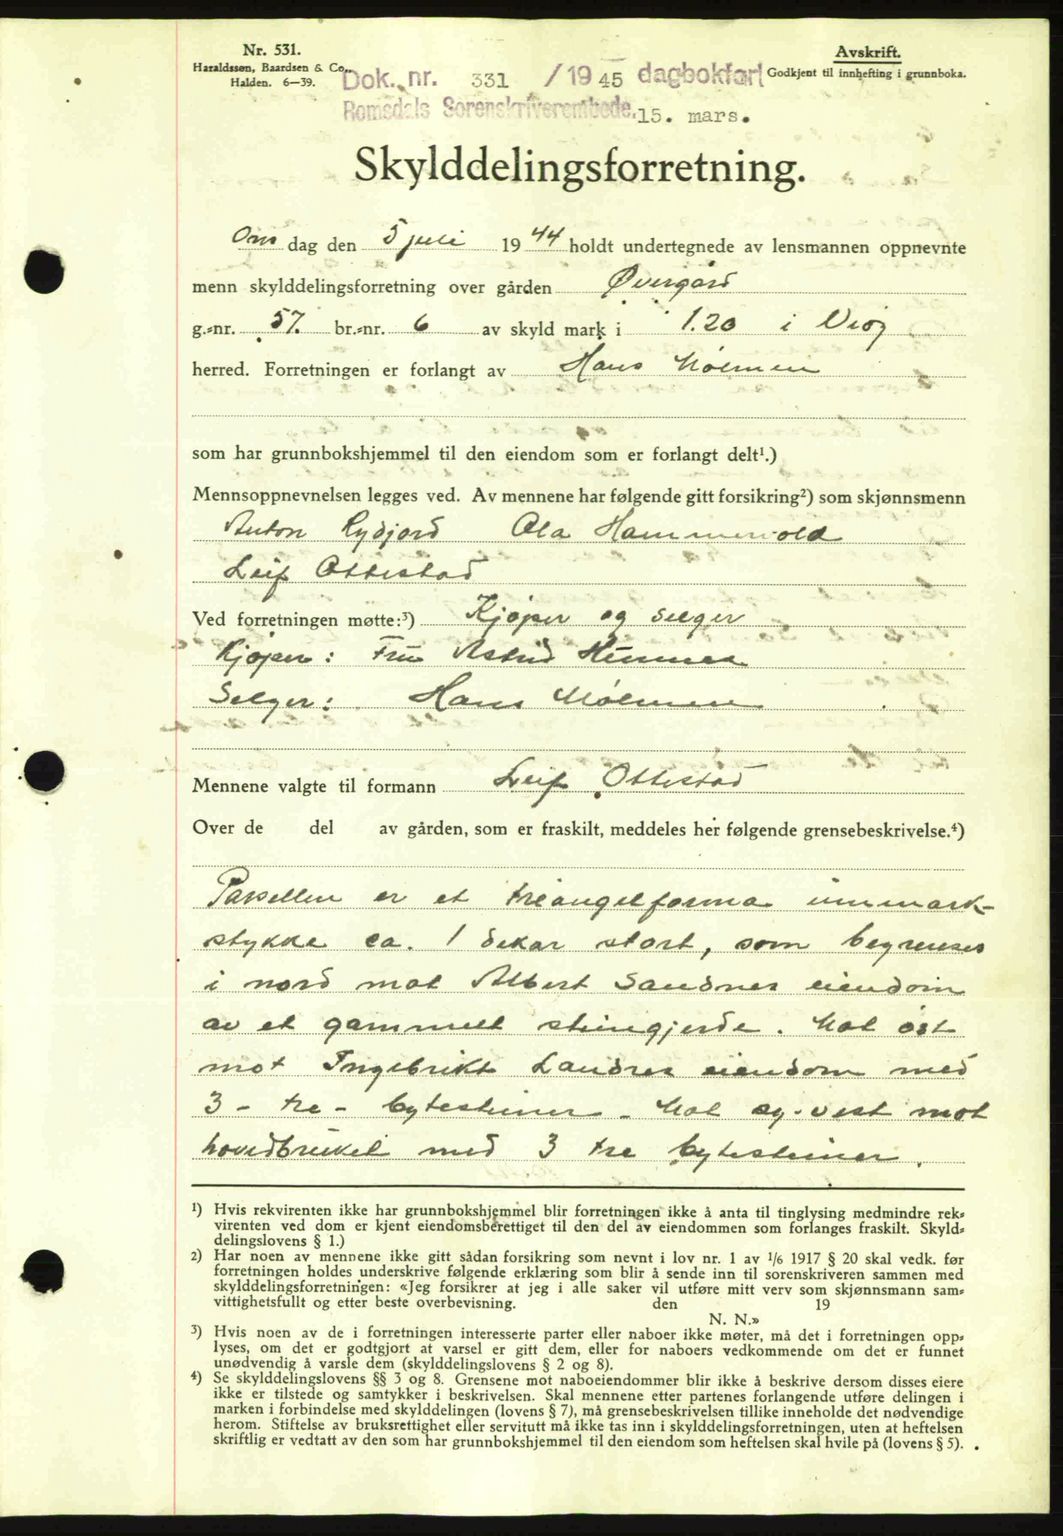 Nr. 531.
Haraldssen, Baardsen & Co.,
Halden. 6—39.
Avskrift.
Godkjent til innhefting i grunnboka.
Dok. nr. 331 /1945 dagbokført
Romsdals Sorenskriverembede. 15. mars.
Skylddelingsforretning.
Ons dag den 5 juli 1944 holdt undertegnede av lensmannen oppnevnte
menn skylddelingsforretning over gården Øvergård
g.=nr. 57. br.=nr. 6 av skyld mark i 1.20 i Veøy
herred. Forretningen er forlangt av Hans Mølmen
som har grunnbokshjemmel til den eiendom som er forlangt delt¹.)
Mennsoppnevnelsen legges ved. Av mennene har følgende gitt forsikring²) som skjønnsmenn
Anton Rydjord Ola Hammervold
Leif Ottestad
Ved forretningen møtte:³) Kjøper og selger
Kjøper: Fru Astrid
Selger: Hans Mølmen
Mennene valgte til formann Leif Ottestad
Over de del av gården, som er fraskilt, meddeles her følgende grensebeskrivelse.⁴)
Parsellen er et treangelforma innmark-
stykke ca. 1 dekar stort, som begrenses
i nord mot Albert Sandnes eiendom
av et gammelt steingjerde. Mot øst
mot Ingebrikt Landres eiendom med
3 - tre - bytesteiner. Mot sy-vest mot
hovedbruket med 3 tre bytesteiner.
¹) Hvis rekvirenten ikke har grunnbokshjemmel blir forretningen ikke å anta til tinglysing medmindre rek=
virenten ved dom er kjent eiendomsberettiget til den del av eiendommen som forlanges fraskilt. Skyld=
delingslovens § 1.)
²) Har noen av mennene ikke gitt sådan forsikring som nevnt i lov nr. 1 av ¹/₆ 1917 § 20 skal vedk. før
forretningen holdes underskrive følgende erklæring som blir å sende inn til sorenskriveren sammen med
skylddelingsforretningen: «Jeg forsikrer at jeg i alle saker vil utføre mitt verv som skjønnsmann sam=
vittighetsfullt og etter beste overbevisning. den 19
N. N.»
³) Hvis noen av de i forretningen interesserte parter eller naboer ikke møter, må det i forretningen opp=
lyses, om det er godtgjort at varsel er gitt dem, eller for naboers vedkommende om det er funnet
unødvendig å varsle dem (skylddelingslovens § 2 og 8).
⁴) Se skylddelingslovens §§ 3 og 8. Grensene mot naboeiendommer blir ikke å beskrive dersom disses eiere
ikke er tilstede og samtykker i beskrivelsen. Skal mennene etter partenes forlangende utføre delingen i
marken i forbindelse med skylddelingen (lovens § 7), må grensebeskrivelsen tillike inneholde det nødvendige
herom. Stiftelse av bruksrettighet eller servitutt må ikke tas inn i skylddelingsforretningen, uten at heftelsen
skriftlig er vedtatt av den som har grunnbokshjemmel til den eiendom som heftelsen skal hvile på (lovens § 5).